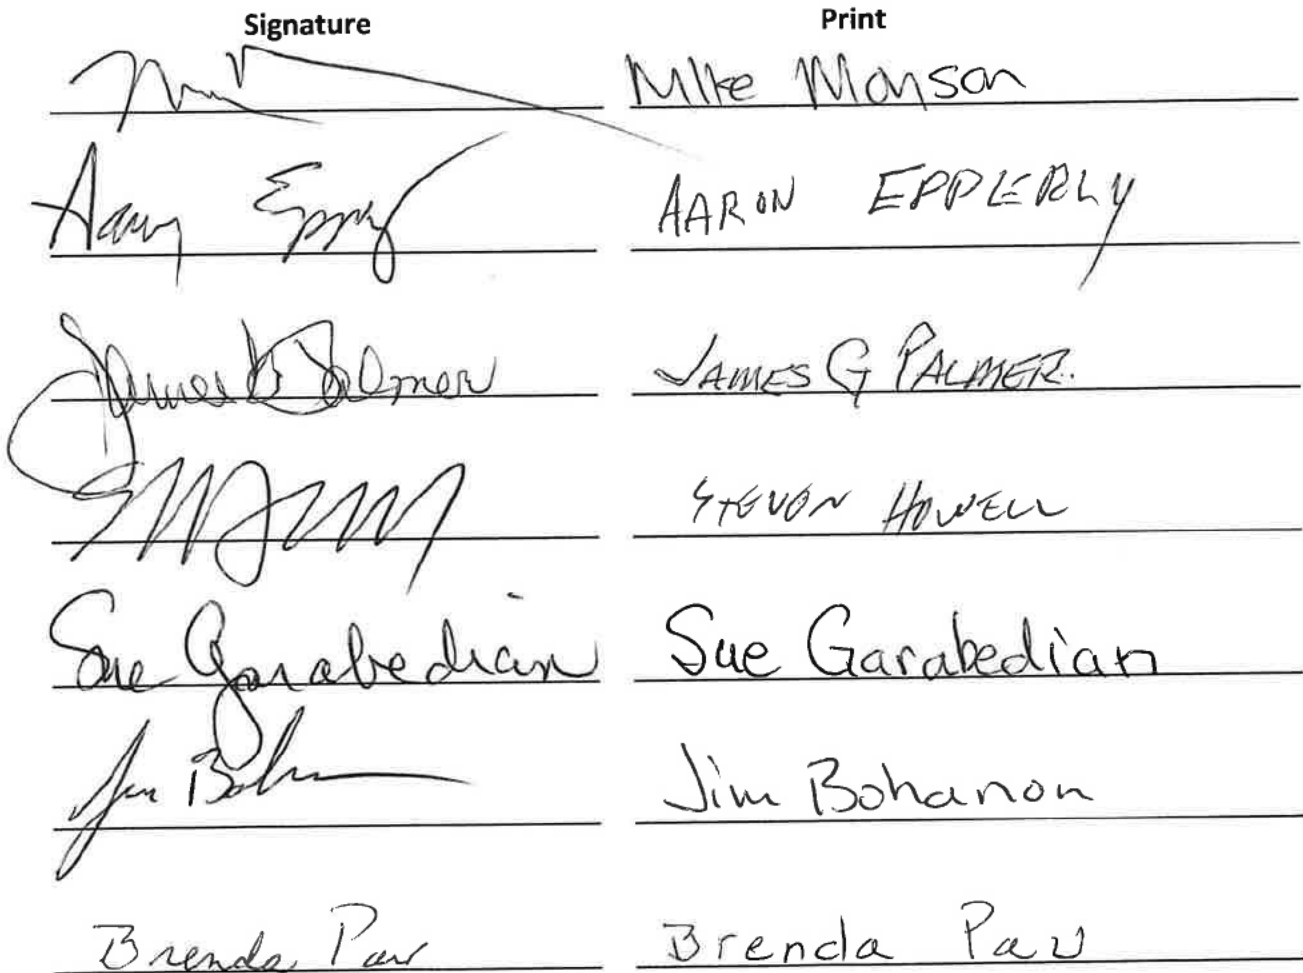 Signature Print
Mike Monson
AARON EPPERLY
James G Palmer JAMES G PALMER.
STEVEN HOWELL
Sue Garabedian Sue Garabedian
Jim Bohanon
Brenda Brenda